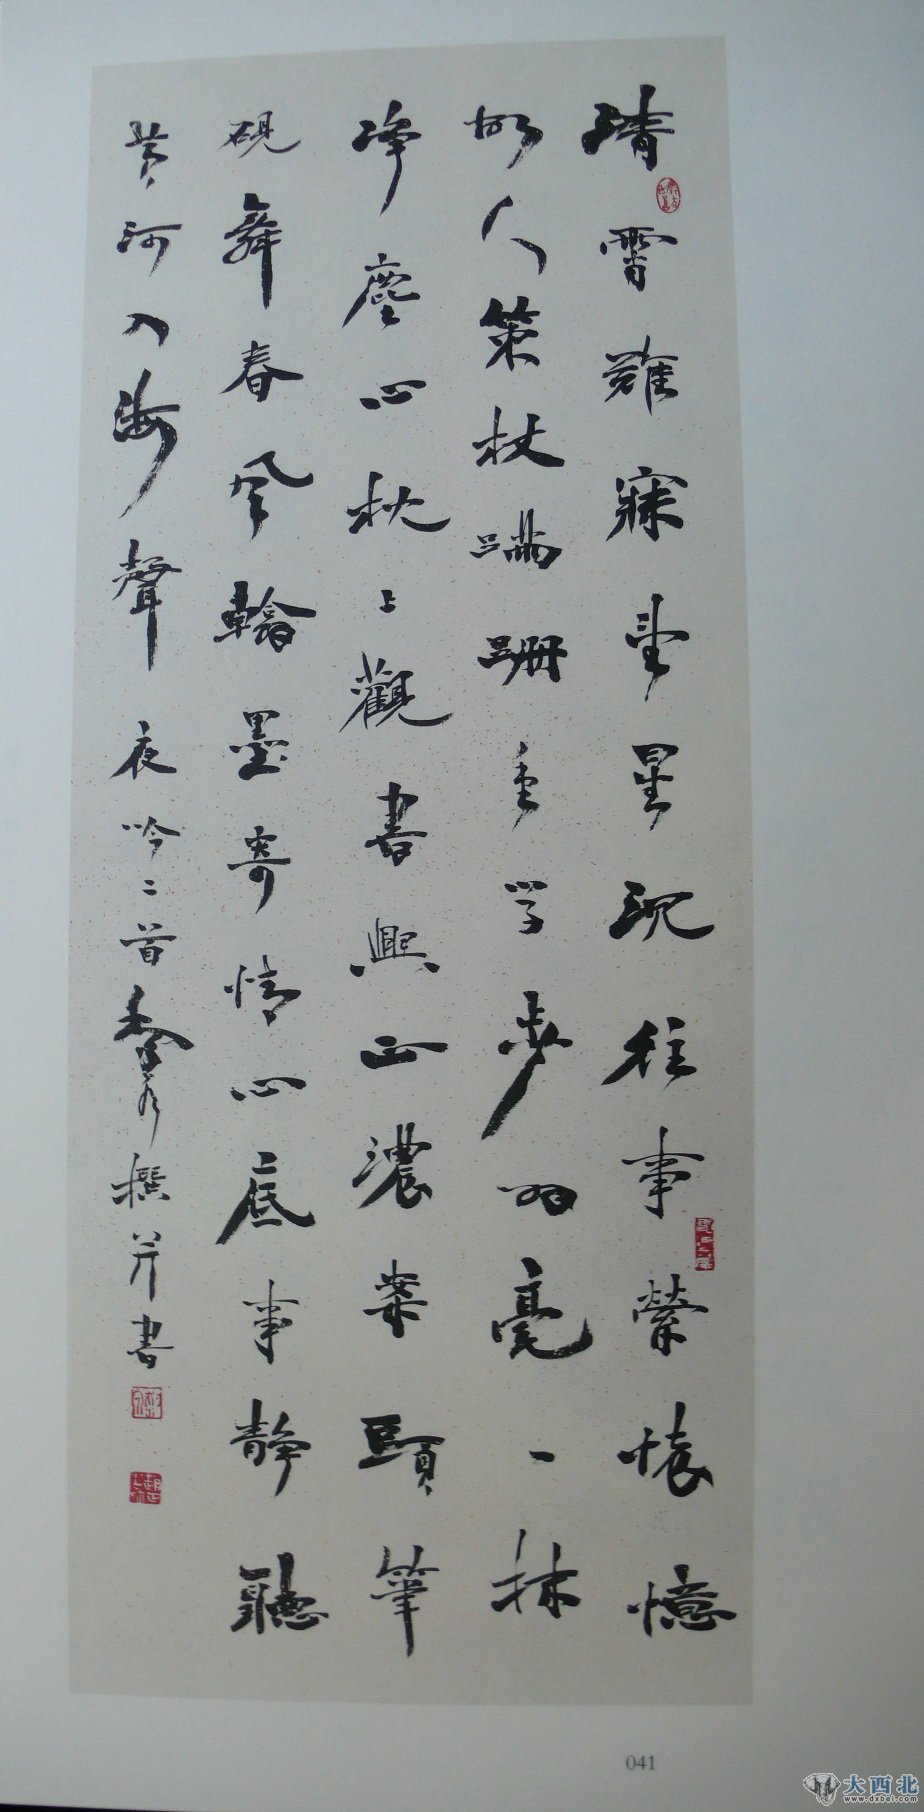 清霄難寐望星沉往事縈懷憶
故人策杖蹒跚重学步羽毫一抹
净塵心枕上觀書興正濃案頭筆
硯舞春風翰墨寄情心底事静聽
黄河入海聲 夜吟二首 撰并書
041
大西北
www.dxbei.com